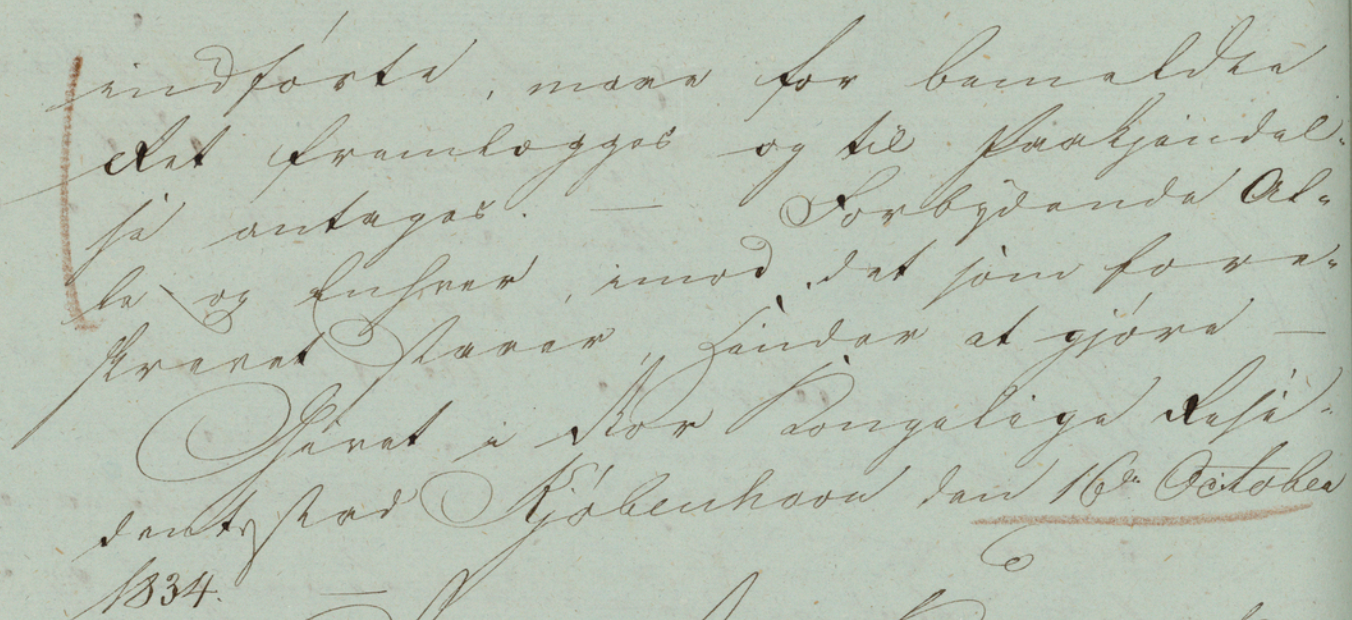 indførte, maae for bemeldte
Ret fremlægges og til Paakjendel-
se antages. — Forbydende Al-
le og Enhver, imod det som fore-
skrevet staaer, Hinder at gjøre —
Givet i Vor Kongelige Resi-
dentsstad Kjøbenhavn den 16de October
1834. —